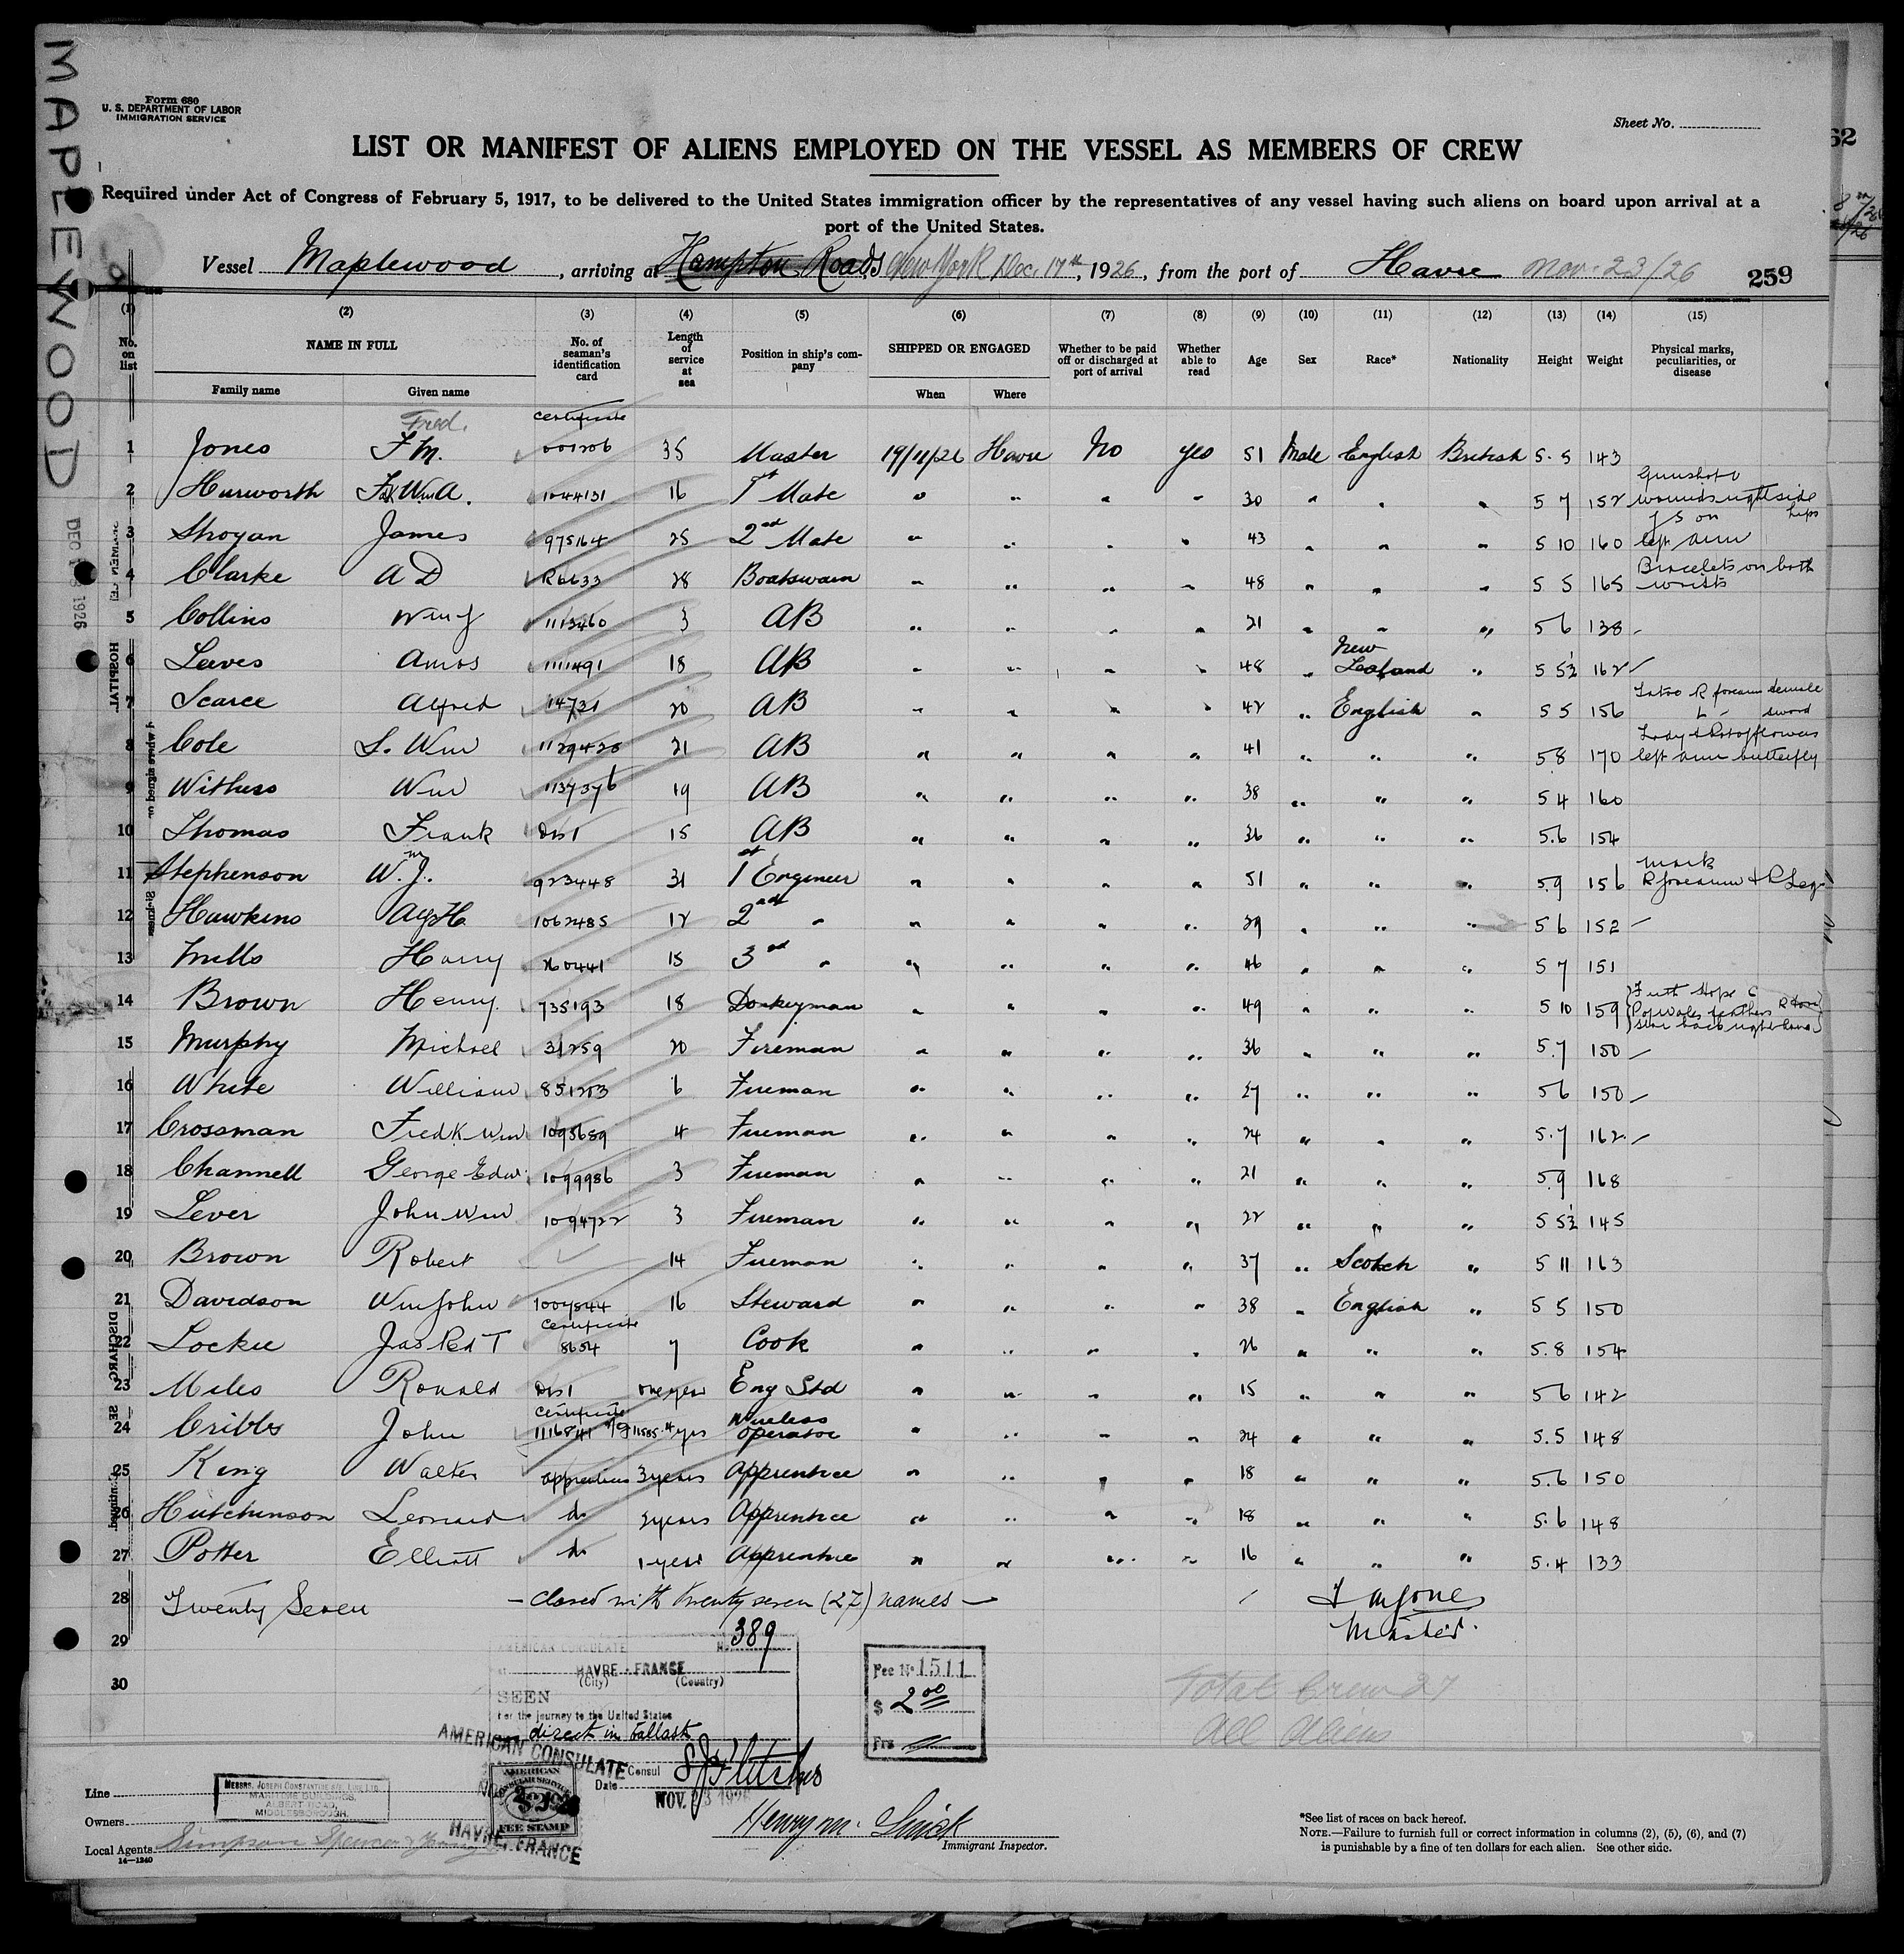 MAPLEWOOD
Form 680
U. S. DEPARTMENT OF LABOR
IMMIGRATION SERVICE
Sheet No.
LIST OR MANIFEST OF ALIENS EMPLOYED ON THE VESSEL AS MEMBERS OF CREW
Required under Act of Congress of February 5, 1917, to be delivered to the United States immigration officer by the representatives of any vessel having such aliens on board upon arrival at a
port of the United States.
Vessel Maplewood, arriving at Hampton Roads New York Dec. 17th, 1926, from the port of Havre Nov. 23/26
259
(1) (2) (3) (4) (5) (6) (7) (8) (9) (10) (11) (12) (13) (14) (15)
No. on list NAME IN FULL No. of seaman's identification card Length of service at sea Position in ship's company SHIPPED OR ENGAGED Whether to be paid off or discharged at port of arrival Whether able to read Age Sex Race* Nationality Height Weight Physical marks, peculiarities, or disease
Family name Given name When Where
Fred. Certificate
1 Jones F M. 001206 35 Master 19/11/26 Havre No yes 51 Male English British 5. 5 143
2 Hurworth Fk Wm A. 1044131 16 1st Mate " " " " 30 " " " 5 7 152 Gunshot wounds right side hips
3 Shogan James 975164 25 2nd Mate " " " " 43 " " " 5 10 160 J S on left arm
4 Clarke A D R6633 28 Boatswain " " " " 48 " " " 5 5 165 Bracelets on both wrists
5 Collins Wm J 1113460 3 AB " " " " 21 " " " 5 6 138
6 Leeves Amos 1111491 18 AB " " " " 48 " New Zealand " 5 5½ 162
7 Scarce Alfred 14731 20 AB " " " " 42 " English " 5 5 156 Tatoo R forearm female L " sword
8 Cole S. Wm 1129428 21 AB " " " " 41 " " " 5 8 170 Lady & Pot of flowers left arm butterfly
9 Withers Wm 1137376 19 AB " " " " 38 " " " 5 4 160
10 Thomas Frank Dis 1 15 AB " " " " 36 " " " 5.6 154
11 Stephenson Wm. J. 923448 31 1st Engineer " " " " 51 " " " 5.9 156 mark R forearm & R Leg
12 Hawkins Alf H. 1062485 12 2nd " " " " " 29 " " " 5 6 152
13 Mills Harry 760441 15 3rd " " " " " 46 " " " 5 7 151
14 Brown Henry 735193 18 Donkeyman " " " " 49 " " " 5 10 159 Faith Hope C P of Wales feathers R fore Star back right hand
15 Murphy Michael 31259 20 Fireman " " " " 36 " " " 5.7 150
16 White William 851253 6 Fireman " " " " 27 " " " 5 6 150
17 Crossman Fredk Wm 1095689 4 Fireman " " " " 24 " " " 5.7 162
18 Channell George Edw. 1099986 3 Fireman " " " " 21 " " " 5.9 168
19 Lever John Wm 1094722 3 Fireman " " " " 22 " " " 5 5½ 145
20 Brown Robert 14 Fireman " " " " 37 " Scotch " 5 11 163
21 Davidson Wm John 1007844 16 Steward " " " " 38 " English " 5 5 150
Certificate
22 Lockie Jas Rd T 8654 7 Cook " " " " 26 " " " 5.8 154
23 Miles Ronald Dis 1 one year Eng Std " " " " 15 " " " 5 6 142
Certificate
24 Cribbs John 1116841 4 yrs Wireless operator " " " " 24 " " " 5.5 148
25 King Walter apprentice 3 years Apprentice " " " " 18 " " " 5.6 150
26 Hutchinson Leonard do 2 years Apprentice " " " " 18 " " " 5.6 148
27 Potter Elliott do 1 year Apprentice " " " " 16 " " " 5.4 133
28 Twenty Seven — Closed with twenty seven (27) names —
F M Jones
Master.
29
30
AMERICAN CONSULATE No. 389
at HAVRE - FRANCE
(City) (Country)
SEEN
For the journey to the United States
direct in ballast
Consul
Date NOV. 23 1926
AMERICAN CONSULATE
HAVRE, FRANCE
AMERICAN
CONSULAR SERVICE
$2
FEE STAMP
Fee No 1511
$ 2 00
Frs
Total Crew 27
All Aliens
Line
Owners
MESSRS. JOSEPH CONSTANTINE S/S. LINE LTD.
MARITIME BUILDINGS,
ALBERT ROAD,
MIDDLESBOROUGH.
Local Agents Simpson Spence & Young
14—1240
Henry M.
Immigrant Inspector.
*See list of races on back hereof.
NOTE.—Failure to furnish full or correct information in columns (2), (5), (6), and (7)
is punishable by a fine of ten dollars for each alien. See other side.